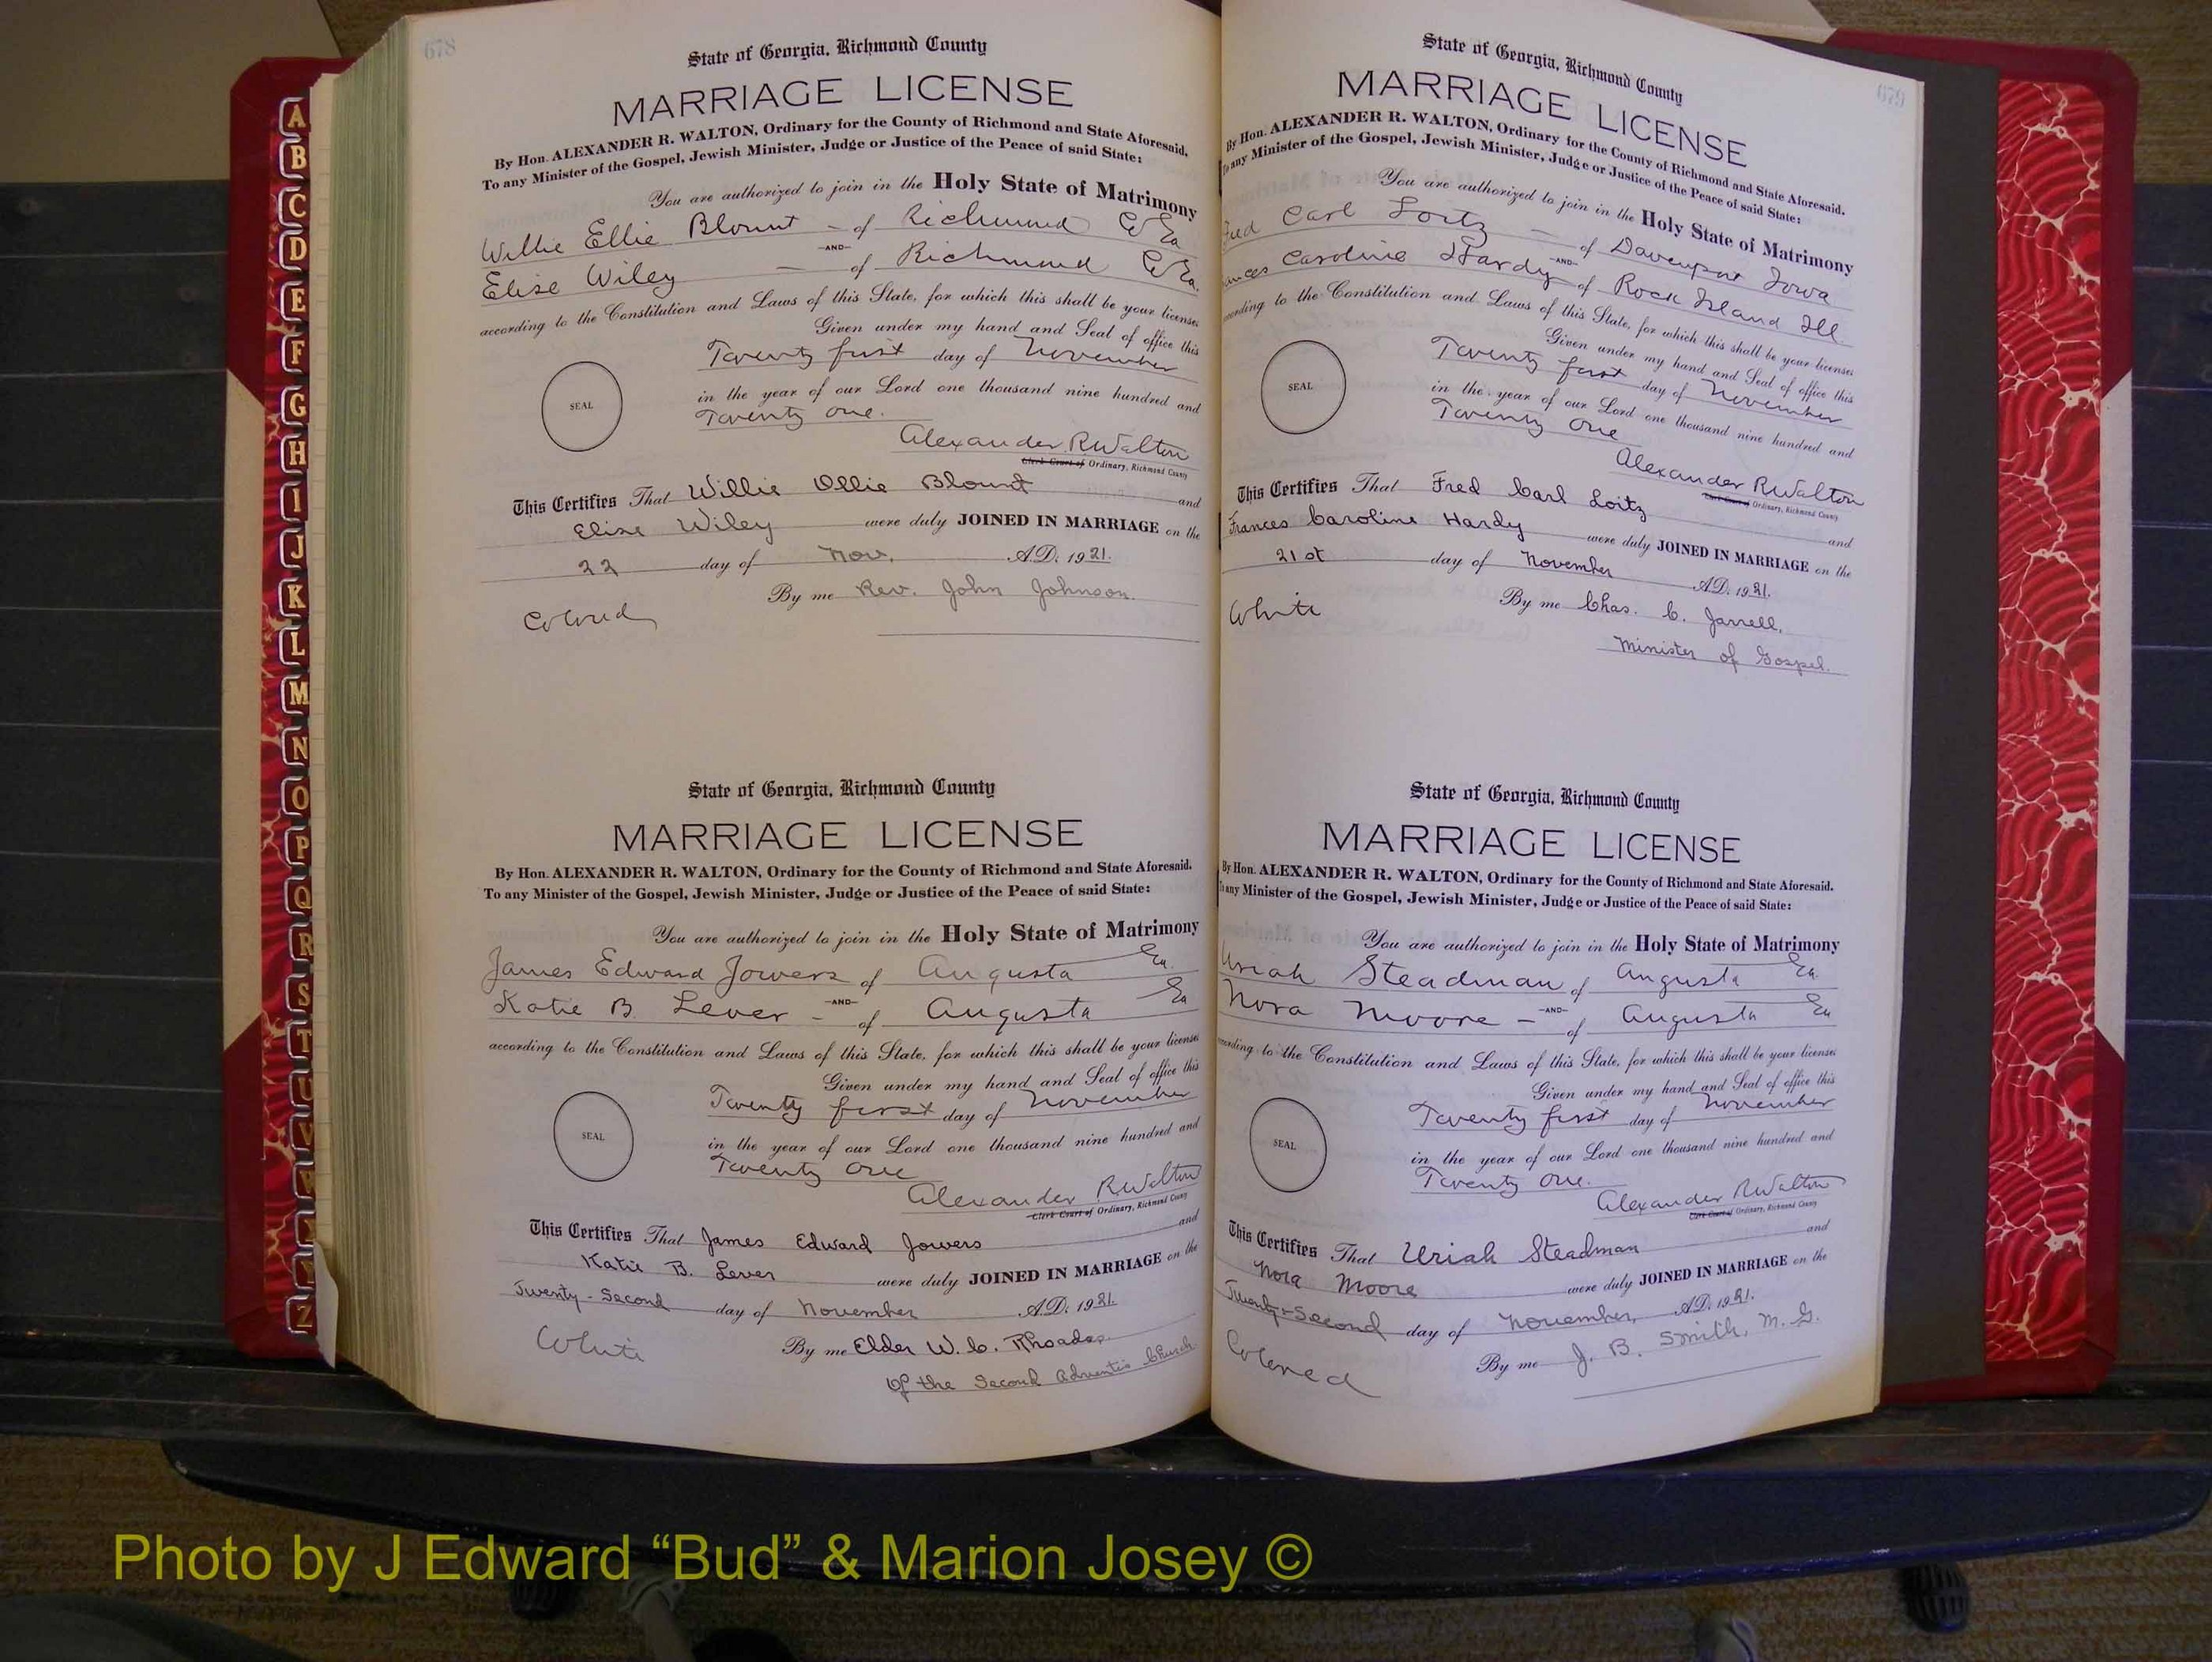 678
State of Georgia, Richmond County
MARRIAGE LICENSE
By Hon. ALEXANDER R. WALTON, Ordinary for the County of Richmond and State Aforesaid.
To any Minister of the Gospel, Jewish Minister, Judge or Justice of the Peace of said State:
You are authorized to join in the Holy State of Matrimony
Willie Ellie Blount - of Richmond Co Ga
-AND-
Elise Wiley - of Richmond Co Ga.
according to the Constitution and Laws of this State, for which this shall be your license
Given under my hand and Seal of office this
Twenty first day of November
SEAL
in the year of our Lord one thousand nine hundred and
Twenty one.
Alexander R Walton
Clerk Court of Ordinary, Richmond County
This Certifies That Willie Ollie Blount and
Elise Wiley were duly JOINED IN MARRIAGE on the
22 day of Nov. A.D. 1921.
By me Rev. John Johnson.
Colored
State of Georgia, Richmond County
MARRIAGE LICENSE
By Hon. ALEXANDER R. WALTON, Ordinary for the County of Richmond and State Aforesaid.
To any Minister of the Gospel, Jewish Minister, Judge or Justice of the Peace of said State:
You are authorized to join in the Holy State of Matrimony
James Edward Jowers of Augusta Ga.
-AND-
Katie B. Lever - of Augusta Ga
according to the Constitution and Laws of this State, for which this shall be your license
Given under my hand and Seal of office this
Twenty first day of November
SEAL
in the year of our Lord one thousand nine hundred and
Twenty One
Alexander R Walton
Clerk Court of Ordinary, Richmond County
This Certifies That James Edward Jowers and
Katie B. Lever were duly JOINED IN MARRIAGE on the
Twenty-Second day of November A.D. 1921.
By me Elder W. C. Rhoades.
White
Of the Second Church
679
State of Georgia, Richmond County
MARRIAGE LICENSE
By Hon. ALEXANDER R. WALTON, Ordinary for the County of Richmond and State Aforesaid.
To any Minister of the Gospel, Jewish Minister, Judge or Justice of the Peace of said State:
You are authorized to join in the Holy State of Matrimony
Fred Carl Loitz - of Davenport Iowa
-AND-
Caroline Hardy of Rock Island Ill.
to the Constitution and Laws of this State, for which this shall be your license
Given under my hand and Seal of office this
Twenty first day of November
SEAL
in the year of our Lord one thousand nine hundred and
Twenty One
Alexander R Walton
Clerk Court of Ordinary, Richmond County
This Certifies That Fred Carl Loitz and
Frances Caroline Hardy were duly JOINED IN MARRIAGE on the
21st day of November A.D. 1921.
By me Chas. C. Jarrell,
White
Minister of Gospel.
State of Georgia, Richmond County
MARRIAGE LICENSE
By Hon. ALEXANDER R. WALTON, Ordinary for the County of Richmond and State Aforesaid.
To any Minister of the Gospel, Jewish Minister, Judge or Justice of the Peace of said State:
You are authorized to join in the Holy State of Matrimony
Uriah Steadman of Augusta Ga.
-AND-
Nora Moore - of Augusta Ga
according to the Constitution and Laws of this State, for which this shall be your license
Given under my hand and Seal of office this
Twenty first day of November
SEAL
in the year of our Lord one thousand nine hundred and
Twenty One.
Alexander R Walton
Clerk Court of Ordinary, Richmond County
This Certifies That Uriah Steadman and
Nora Moore were duly JOINED IN MARRIAGE on the
Twenty-Second day of November, A.D. 1921.
By me J. B. Smith, M. G.
Colored
A
B
C
D
E
F
G
H
I
J
K
L
M
N
O
P
Q
R
S
T
U
V
W
Z
Photo by J Edward “Bud” & Marion Josey ©